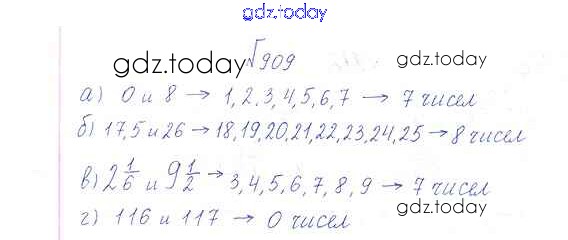 gdz.today
√909
gdz.today
gdz.today
а) 0 и 8 → 1,2,3,4,5,6,7 → 7 чисел
б) 17,5 и 26 → 18,19,20,21,22,23,24,25 → 8 чисел
в) 2 1/6 и 9 1/2 → 3,4,5,6,7,8,9 → 7 чисел
gdz.today
г) 116 и 117 → 0 чисел